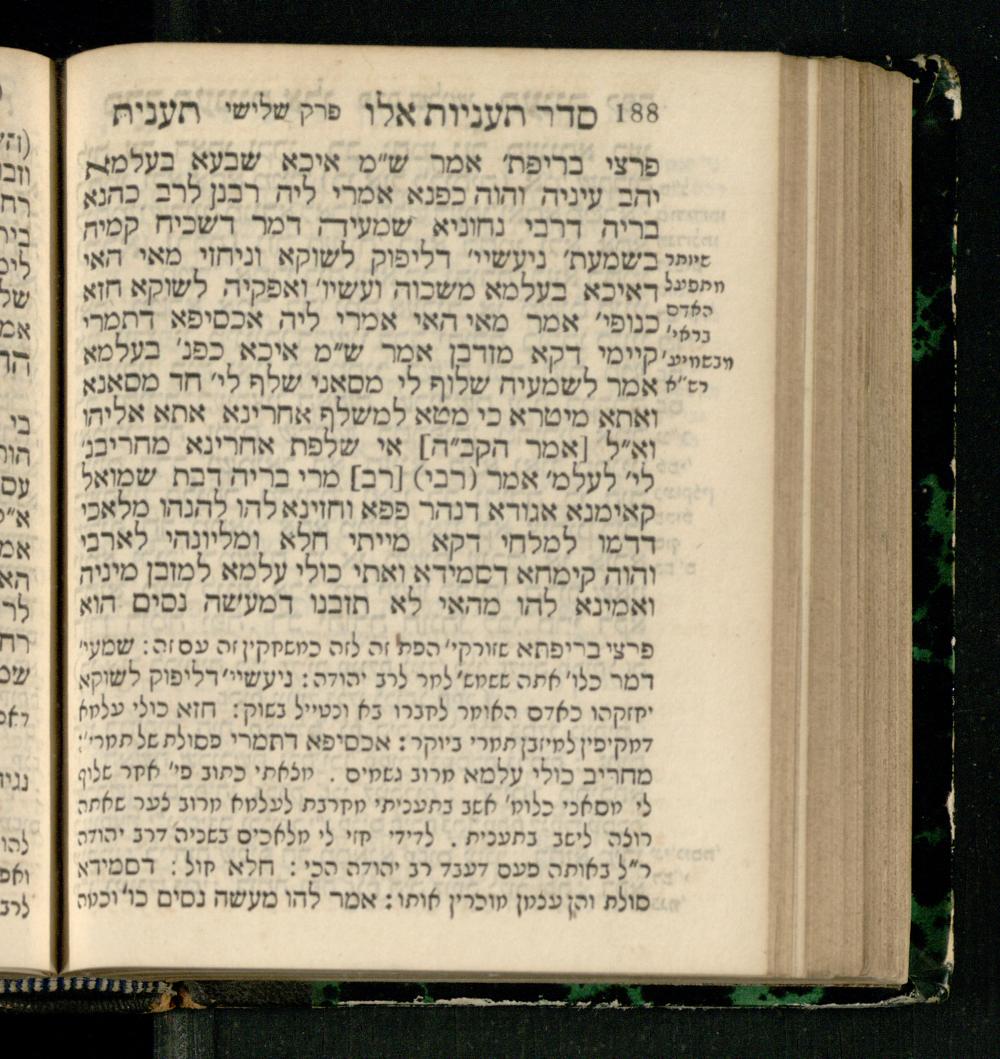 188 סדר תעניות אלו פרק שלישי תענית
פרצי בריפת' אמר ש"מ איכא שבעא בעלמא
יהב עיניה והוה כפנא אמרי ליה רבנן לרב כהנא
בריה דרבי נחוניא שמעיה דמר דשכיח קמיה
בשמעת' ניעשיי' דליפוק לשוקא וניחזי מאי האי
דאיכא בעלמא משכוה ועשיו' ואפקיה לשוקא חזא
כנופי' אמר מאי האי אמרי ליה אכסיפא דתמרי
קיימי דקא מזדבן אמר ש"מ איכא כפנ' בעלמא
אמר לשמעיה שלוף לי מסאני שלף לי' חד מסאנא
ואתא מיטרא כי מטא למשלף אחרינא אתא אליהו
וא"ל [אמר הקב"ה] אי שלפת אחרינא מחריבנ'
לי' לעלמ' אמר (רבי) [רב] מרי בריה דבת שמואל
קאימנא אגודא דנהר פפא וחזינא להו להנהו מלאכי
דדמו למלחי דקא מייתי חלא ומליונהי לארבי
והוה קימחא דסמידא ואתי כולי עלמא למזבן מיניה
ואמינא להו מהאי לא תזבנו דמעשה נסים הוא
שיותר
מתפעל
האדם
בראי'
מבשמיע'
רש"א
פרצי בריפתא שזורקי' הפת זה לזה כמשחקין זה עם זה: שמעי'
דמר כלו' אתה ששמש' למר לרב יהודה: ניעשיי' דליפוק לשוקא
יחזקהו כאדם האומר לחברו בא ונטייל בשוק: חזא כולי עלמא
דמקיפין למיזבן תמרי ביוקר: אכסיפא דתמרי פסולת של תמרי':
מחריב כולי עלמא מרוב גשמים . מלאתי כתוב פי' אחר שלוף
לי מסאני כלומ' אשב בתעניתי מקרבת לעלמא מרוב לער שאתה
רולה לישב בתענית . לדידי חזי לי מלאכים בשניה דרב יהודה
ר"ל באותה פעם דעבד רב יהודה הכי: חלא חול: דסמידא
סולת והן עלמן מוכרין אותו: אמר להו מעשה נסים כו' וכמה